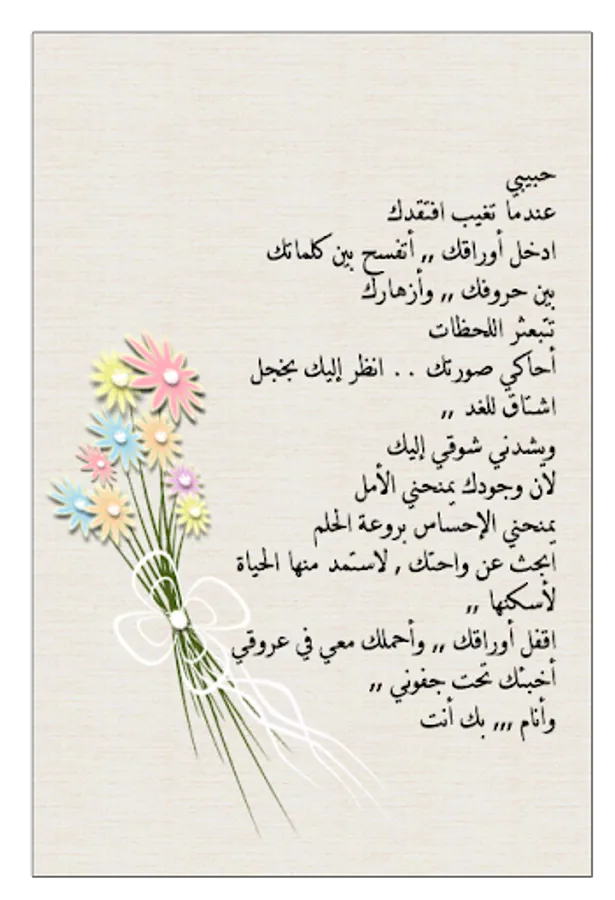 حبيبي
عندما تغيب افتقدك
ادخل أوراقك ,, أتفسح بين كلماتك
بين حروفك ,, وأزهارك
تتبعثر اللحظات
أحاكي صورتك . . انظر إليك بخجل
اشتاق للغد ,,
ويشدني شوقي إليك
لأن وجودك يمنحني الأمل
يمنحني الإحساس بروعة الحلم
ابحث عن واحتك , لاستمد منها الحياة
لأسكنها ,,
اقفل أوراقك ,, وأحملك معي في عروقي
أخبئك تحت جفوني ,,
وأنام ,,, بك أنت